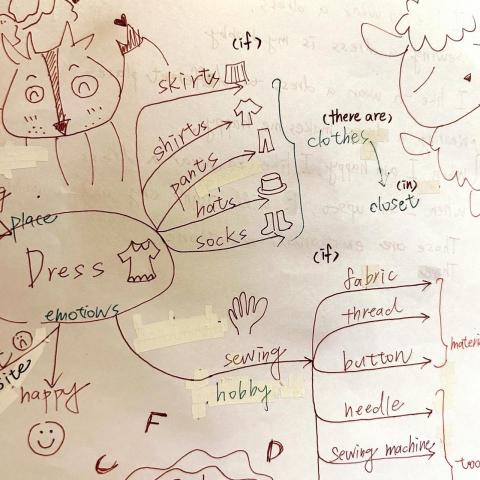 (if)
skirts
shirts
pants
hats
socks
(there are)
clothes
(in)
closet
place
Dress
emotions
happy
(if)
fabric
thread
button
needle
sewing machine
sewing
hobby
F
C
D